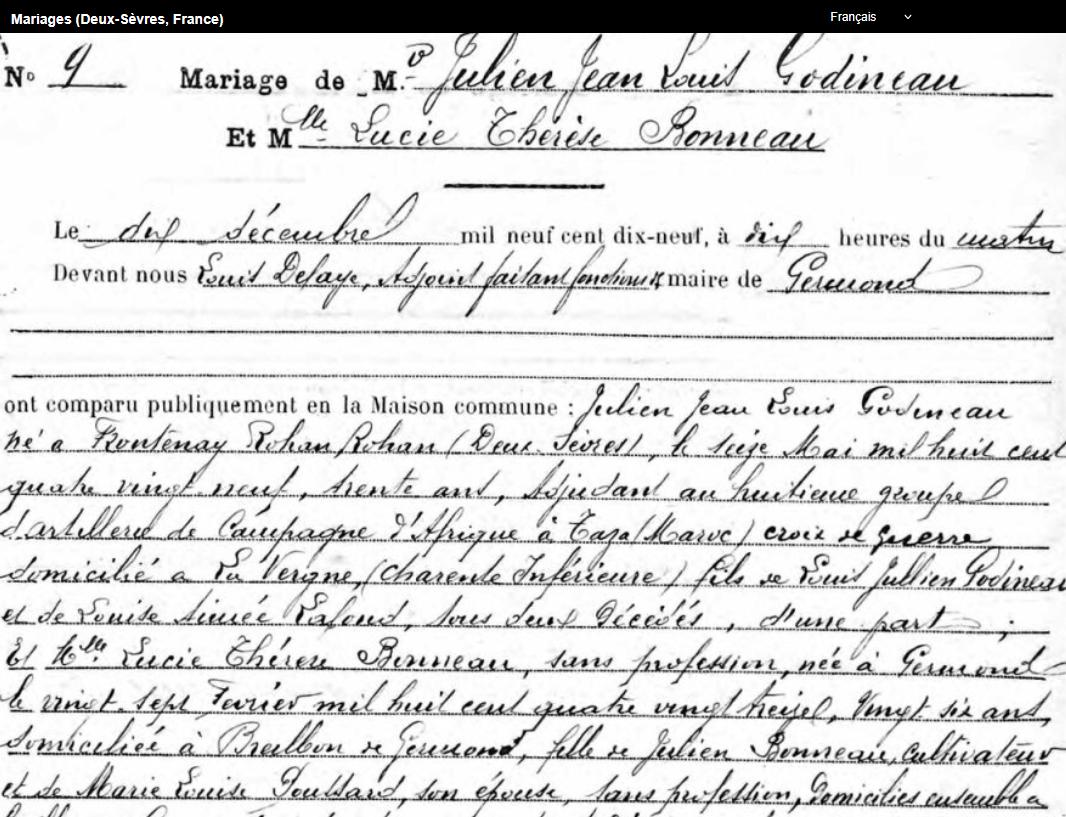 Mariages (Deux-Sèvres, France)
Français
No 9 Mariage de M.r Julien Jean Louis Godineau
Et Mlle Lucie Thérèse Bonneau
Le dix décembre mil neuf cent dix-neuf, à dix heures du matin
Devant nous Louis Delaye, Adjoint faisant fonctions de maire de Germond
ont comparu publiquement en la Maison commune : Julien Jean Louis Godineau
né à Frontenay Rohan Rohan (Deux-Sèvres), le seize Mai mil huit cent
quatre vingt neuf, trente ans, Adjudant au huitième groupe
d'artillerie de Campagne d'Afrique à Taza (Maroc) croix de guerre
domicilié à La Vergne, (Charente Inférieure) fils de Louis Jullien Godineau
et de Louise Aimée Lafond, tous deux décédés, d'une part ;
Et Mlle Lucie Thérèse Bonneau, sans profession, née à Germond
le vingt sept Février mil huit cent quatre vingt treize, Vingt six ans,
domiciliée à Breilbon de Germond, fille de Julien Bonneau, cultivateur
et de Marie Louise Poussard, son épouse, sans profession, domiciliés ensemble à